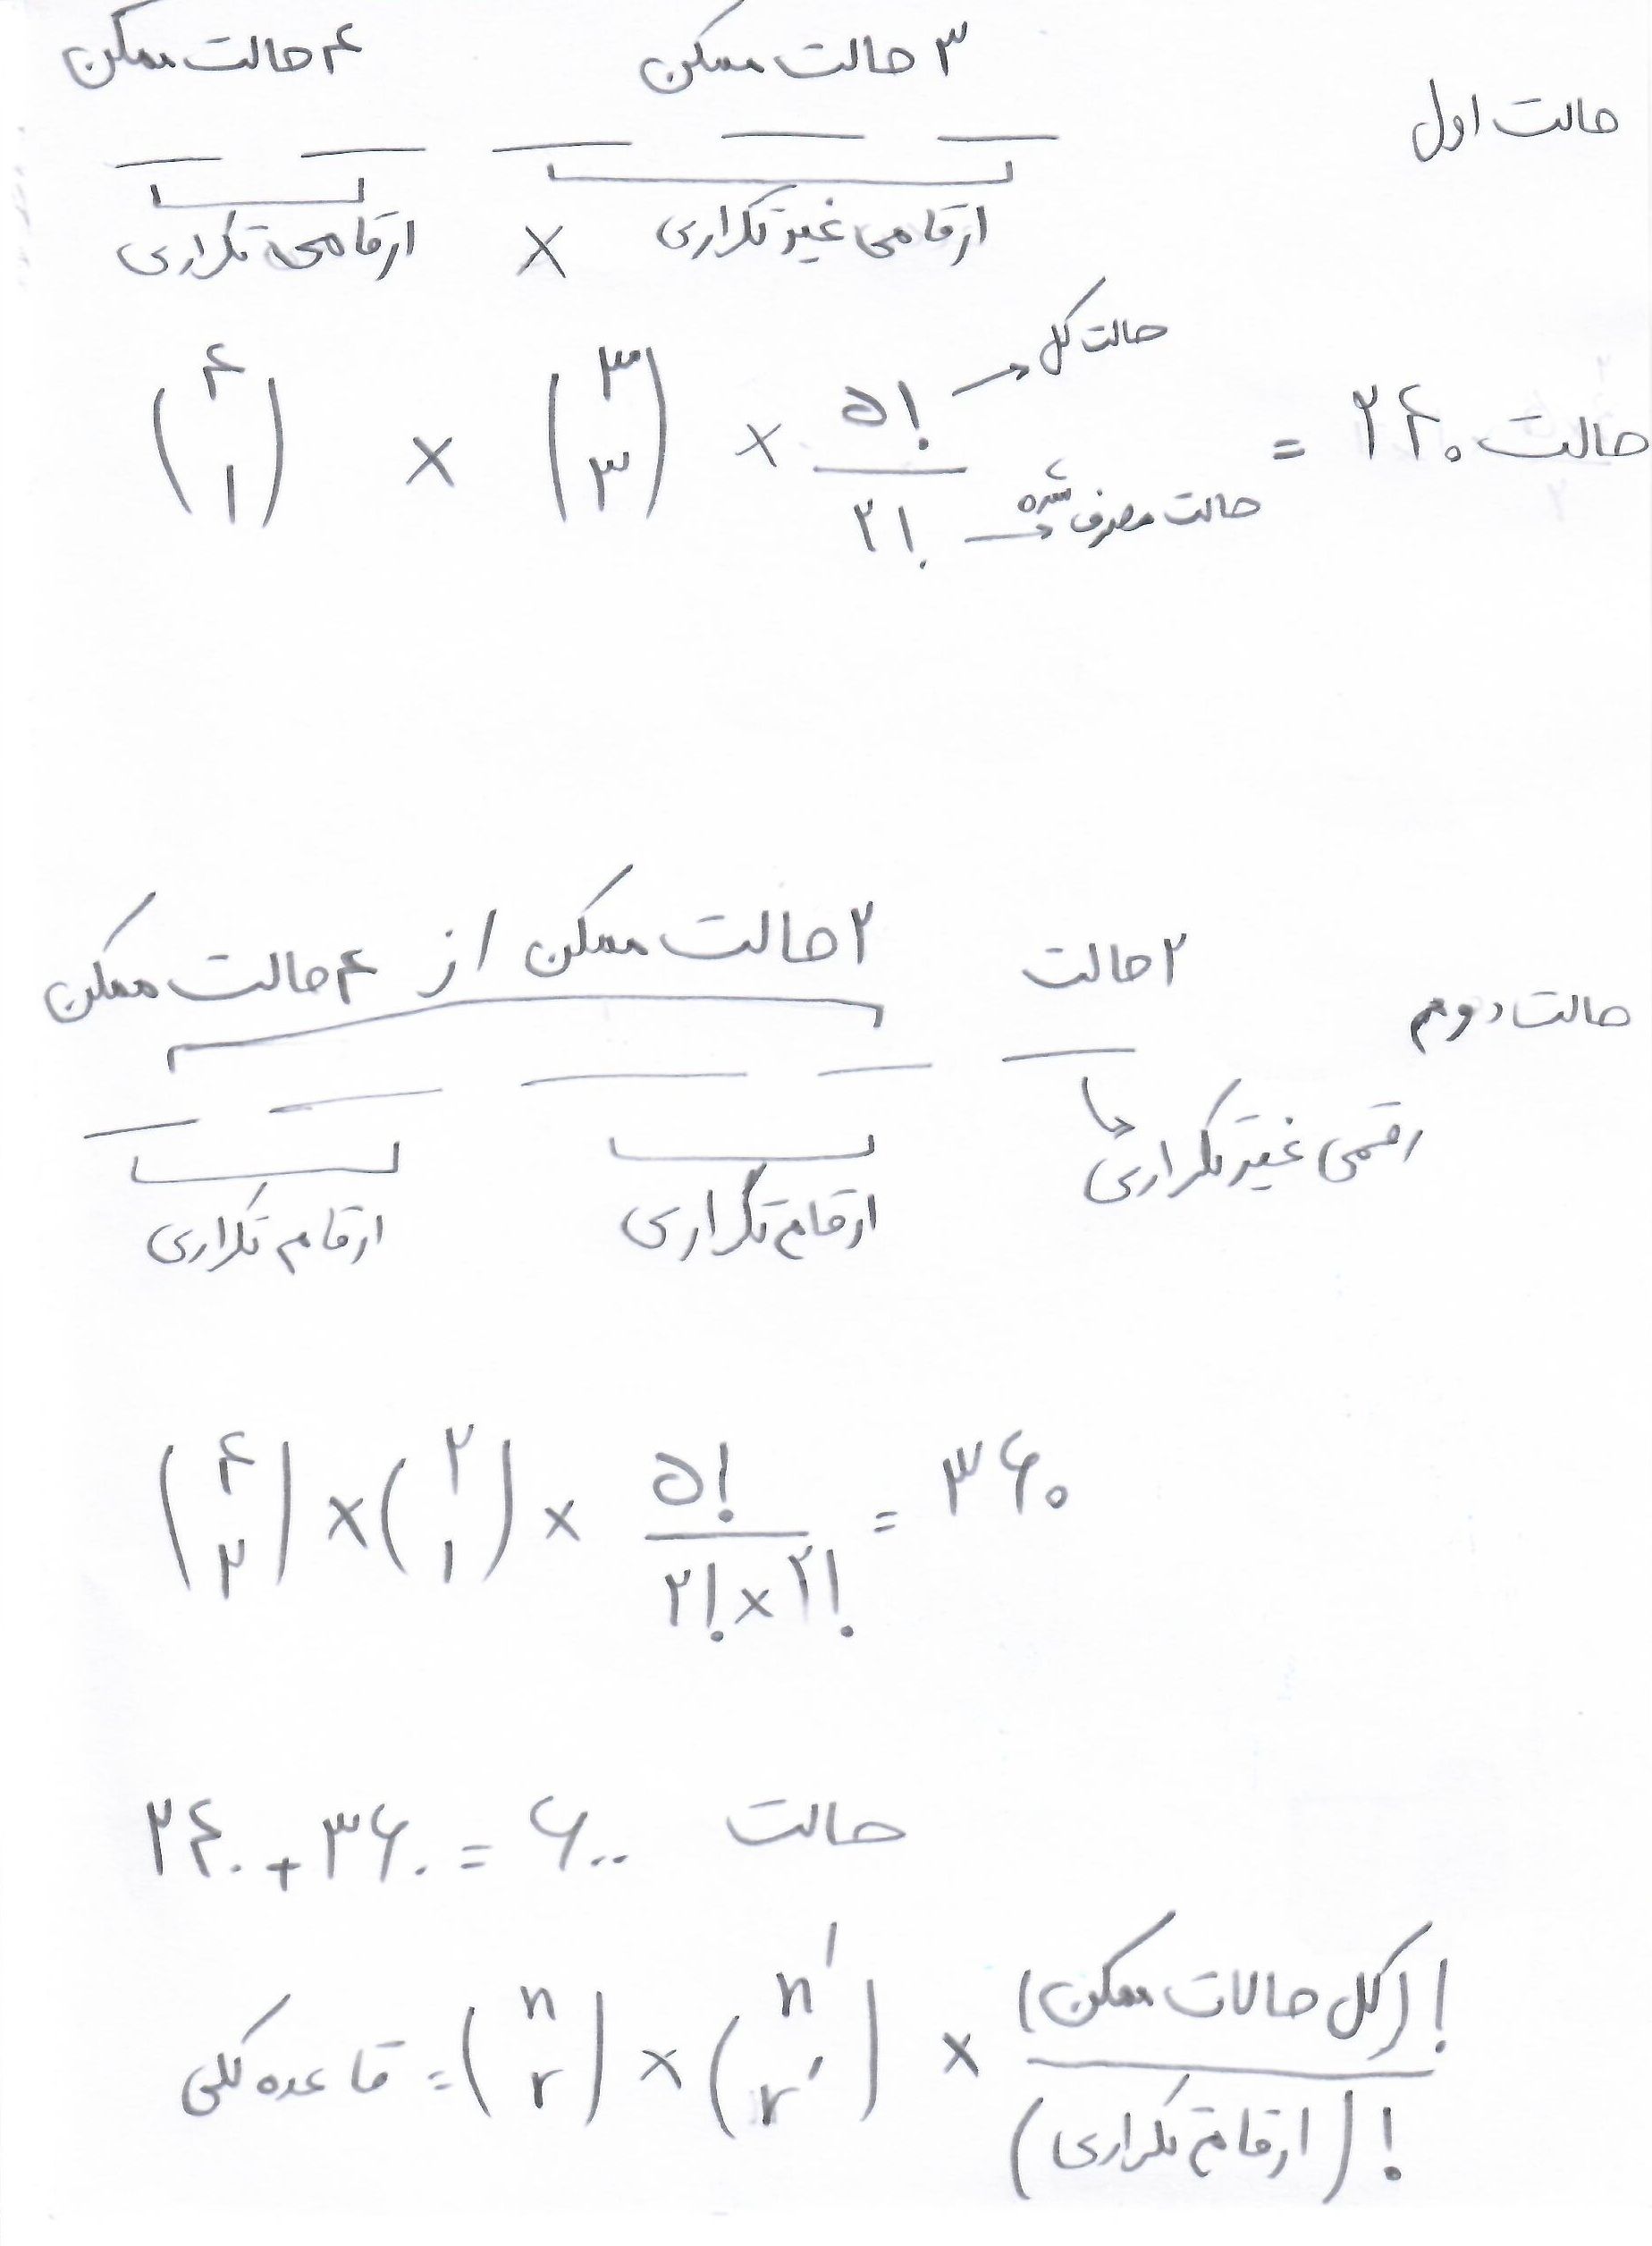 حالت اول
۳ حالت ممکن
۴ حالت ممکن
ارقامی غیر تکراری × ارقامی تکراری
(۴ ۱) × (۳ ۳) × ۵!/۲! = ۲۴۰ حالت
حالت کل
حالت مصرف شده
حالت دوم
۲ حالت
۲ حالت ممکن از ۴ حالت ممکن
رقمی غیر تکراری
ارقام تکراری
ارقام تکراری
(۴ ۲) × (۲ ۱) × ۵!/۲!×۲! = ۳۶۰
۲۴۰ + ۳۶۰ = ۶۰۰ حالت
قاعده کلی = (n r) × (n' r') × (کل حالات ممکن)!/(ارقام تکراری)!